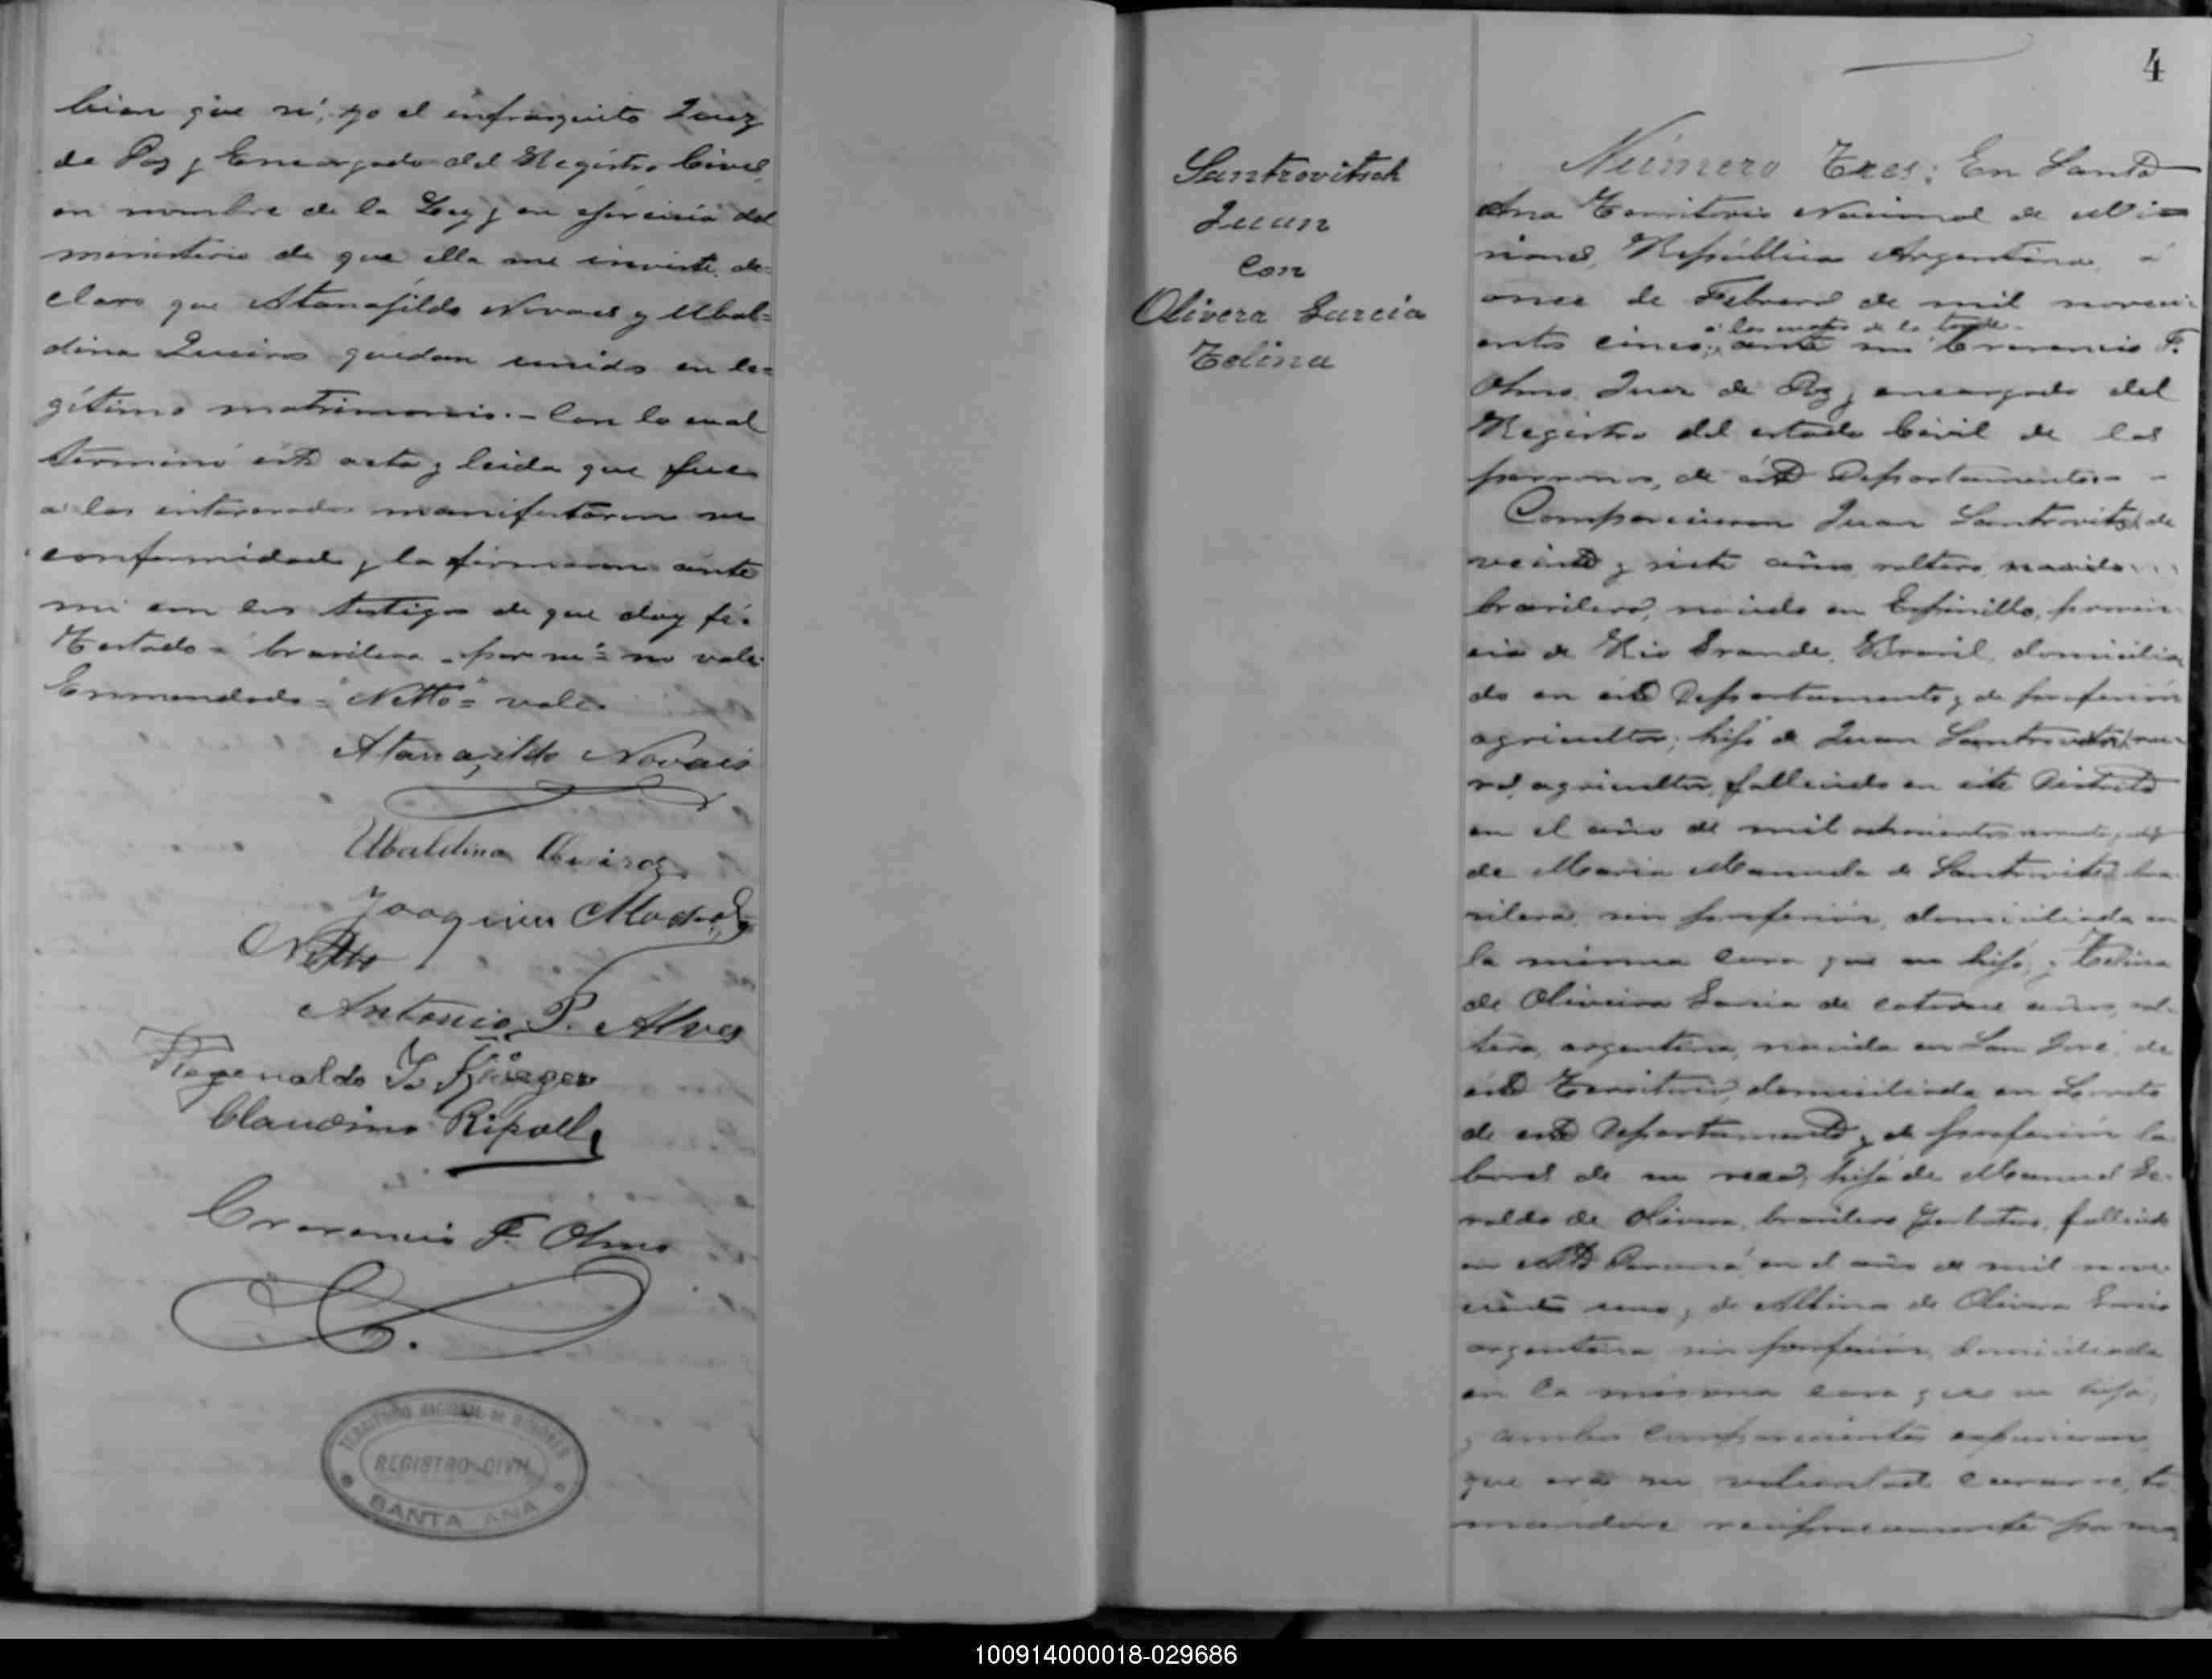 bien que si, yo el infrascrito Juez
de Paz y Encargado del Registro Civil,
en nombre de la Ley y en ejercicio del
ministerio de que ella me inviste, de=
claro que Atanagildo Novaes y Ubal=
dina Queiros quedan unidos en le=
gítimo matrimonio.- Con lo cual
terminó esta acta y leida que fue
a los interesados manifestaron su
conformidad y la firmaron ante
mi con los testigos de que doy fé.
Testado = brasilera - por si = no vale.
Enmendado = "Netto" = vale.
Atanagildo Novaes
Ubaldina Queiroz
Joaquim
Netto
Antonio P. Alves
Regenaldo Krieger
Claudino Ripoll
Crecencio F. Olmo
TERRITORIO NACIONAL DE MISIONES
REGISTRO CIVIL
SANTA ANA
4
Santrovitsch
Juan
Con
Olivera Garcia
Zelina
Número Tres: En Santa
Ana Territorio Nacional de Mi=
siones, República Argentina, á
once de Febrero de mil noveci-
a las cuatro de la tarde
entos cinco, ante mi Crecencio F.
Olmo, Juez de Paz y encargado del
Registro del estado Civil de las
personas, de este Departamento -
Comparecieron Juan Santrovitsch de
veinte y siete años, soltero,
brasilero, nacido en Espinillo, provin-
cia de Rio Grande, Brasil, domicilia
do en este Departamento y de profesion
agricultor; hijo de Juan Santrovitsch,
agricultor, fallecido en este Distrito
en el año de mil ochocientos noventa y
de Maria Manuela de Santrovitsch, bra-
silera, sin profesion, domiciliada en
la misma casa que su hijo, y Zelina
de Oliveira Garcia de catorce años, sol-
tera, argentina, nacida en San José, de
este Territorio, domiciliada en Loreto
de este Departamento y de profesion la
bores de su sexo, hija de Manuel Ge-
raldo de Olivera, brasilero yerbatero, fallecido
en Alto Paraná en el año de mil nove-
cientos uno, y de Albina de Olivera Garcia
argentina sin profesion, domiciliada
en la misma casa que su hija,
y ambos comparecientes expusieron
que era su voluntad casarse, to
mandose reciprocamente por ma
100914000018-029686